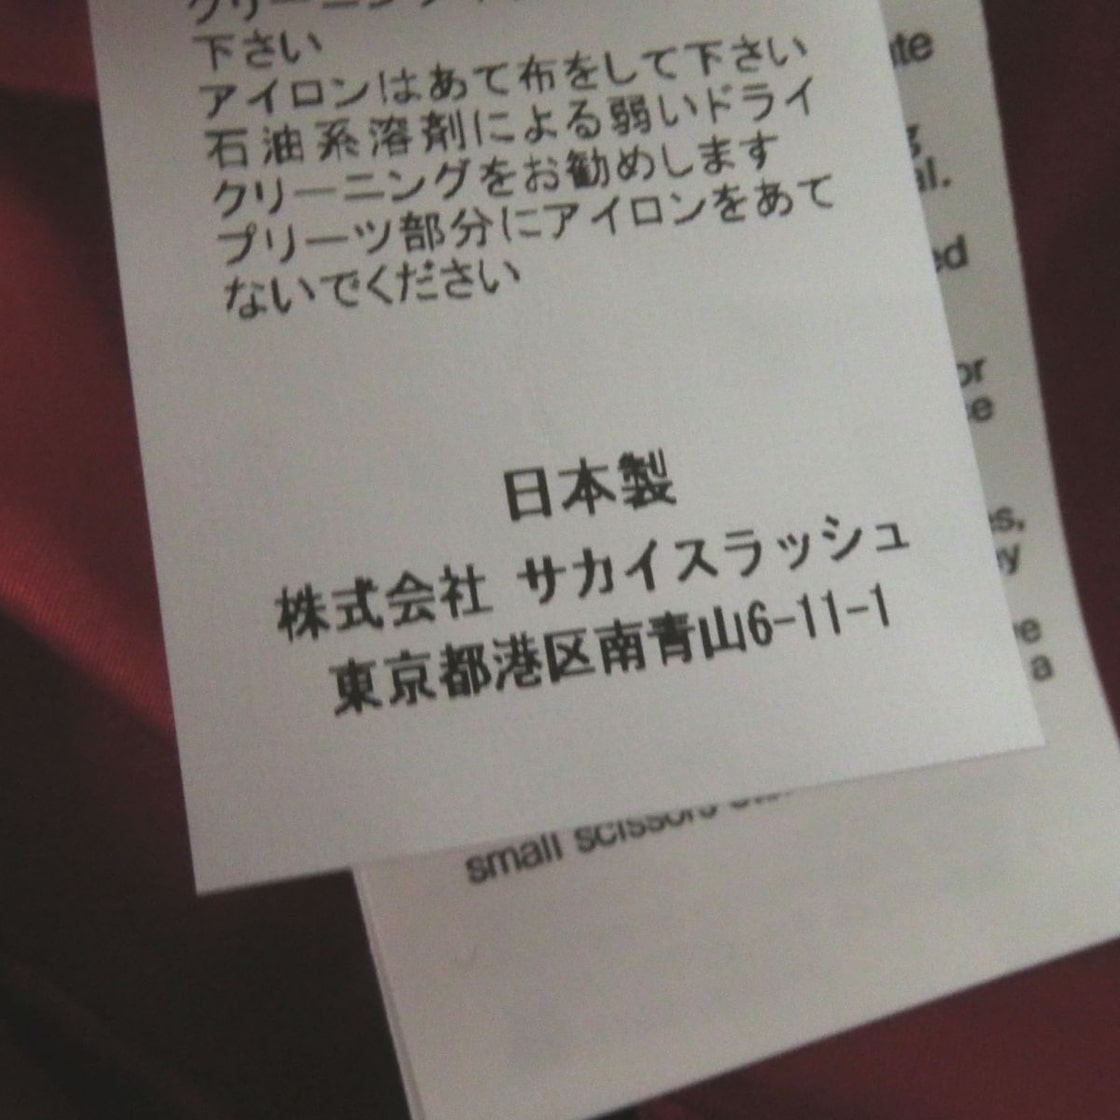 クリーニング
下さい
アイロンはあて布をして下さい
石油系溶剤による弱いドライ
クリーニングをお勧めします
プリーツ部分にアイロンをあて
ないでください
日本製
株式会社 サカイスラッシュ
東京都港区南青山6-11-1
small scissors